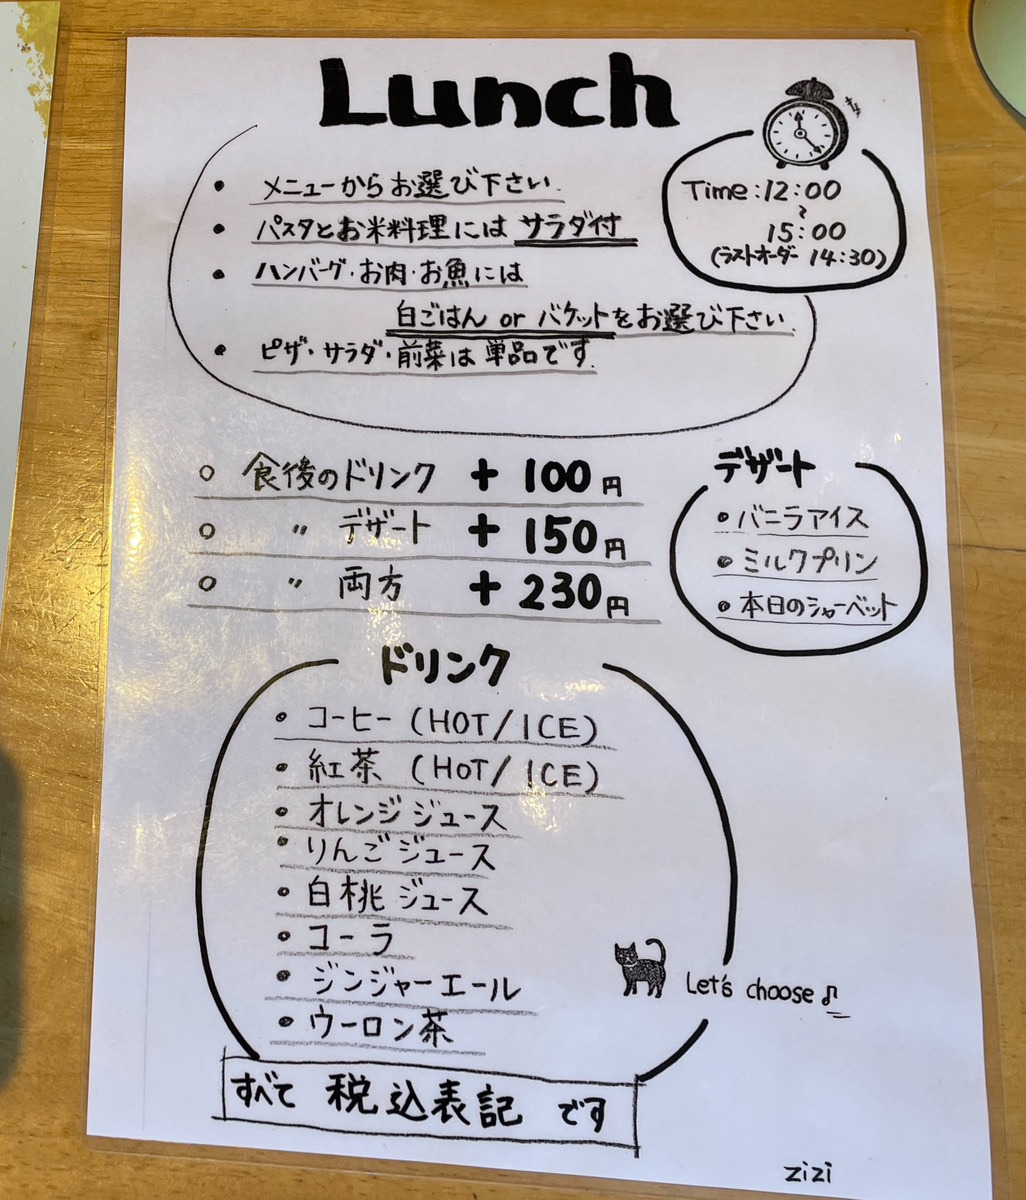 Lunch
・メニューからお選び下さい.
・パスタとお米料理には サラダ付
・ハンバーグ・お肉・お魚には
白ごはん or バケットをお選び下さい.
・ピザ・サラダ・前菜は 単品です.
Time:12:00
~
15:00
(ラストオーダー 14:30)
○ 食後のドリンク + 100円
○ 〃 デザート + 150円
○ 〃 両方 + 230円
デザート
・バニラアイス
・ミルクプリン
・本日のシャーベット
ドリンク
・コーヒー (HOT/ICE)
・紅茶 (HOT/ICE)
・オレンジジュース
・りんごジュース
・白桃ジュース
・コーラ
・ジンジャーエール
・ウーロン茶
Let's choose♫
すべて 税込表記 です
zizi